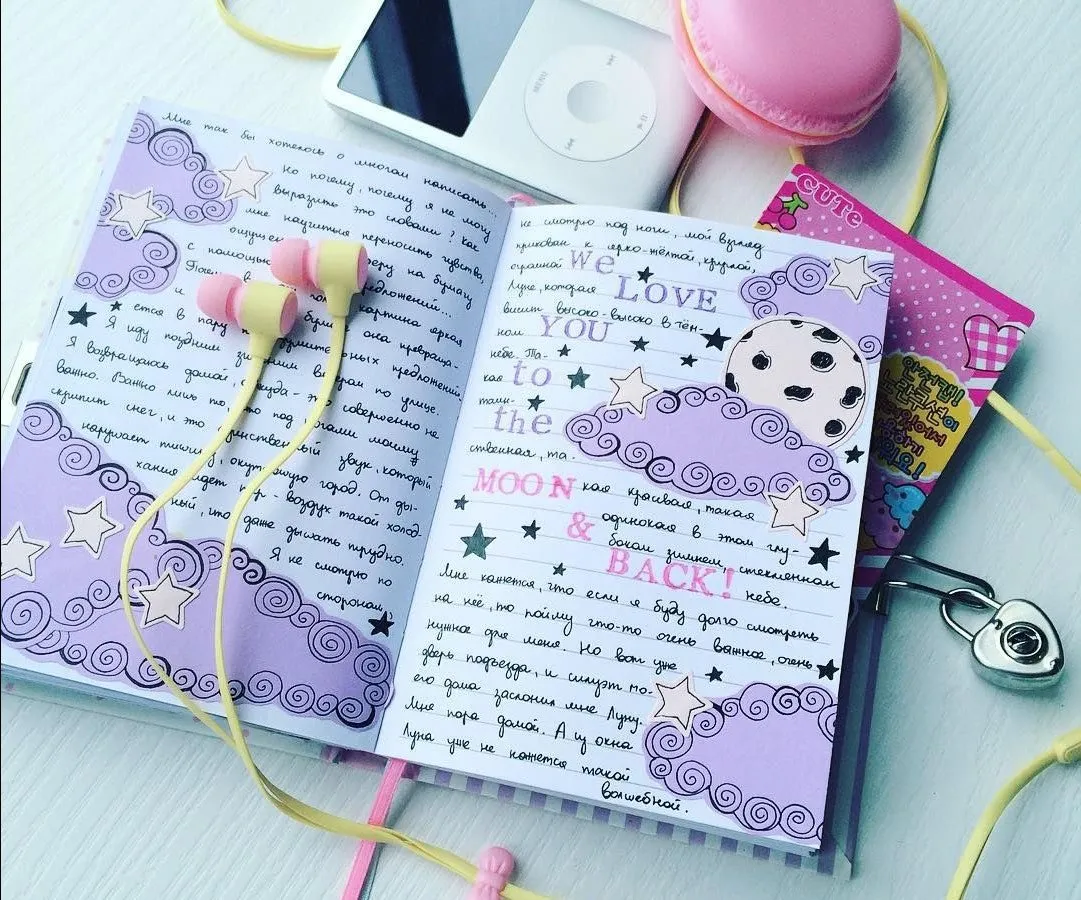 MENU
CUTe
Мне так бы хотелось о многом написать...
Но почему, почему я не могу
выразить это словами? Как
мне научиться переносить чувства,
ощуще
с помощью ру на бумагу
Поче в предложений...
и по картина яркая
ется в пару бума она превраща-
Я иду поздним зимним вечером по улице. умительных предложений.
Я возвращаюсь домой, откуда - это совершенно не
важно. Важно лишь то, что под ногами моими
скрипит снег, и это единственный звук, который
нарушает тишину, окутавшую город. От ды-
хания идет пар - воздух такой холод-
ный, что даже дышать трудно.
Я не смотрю по
сторонам,
не смотрю под ноги, мой взгляд
прикован к ярко-жёлтой, круглой,
огромной
Луне, которая
висит высоко-высоко в тём-
ном
небе. Та-
кая
таин-
ственная, та-
кая красивая, такая
одинокая в этом глу-
боком зимнем, стеклянном
небе.
we
LOVE
YOU
to
the
MOON
&
BACK!
Мне кажется, что если я буду долго смотреть
на неё, то пойму что-то очень важное, очень
нужное для меня. Но вот уже
дверь подъезда, и силуэт мо-
его дома заслонил мне Луну.
Мне пора домой. А из окна
Луна уже не кажется такой
волшебной.